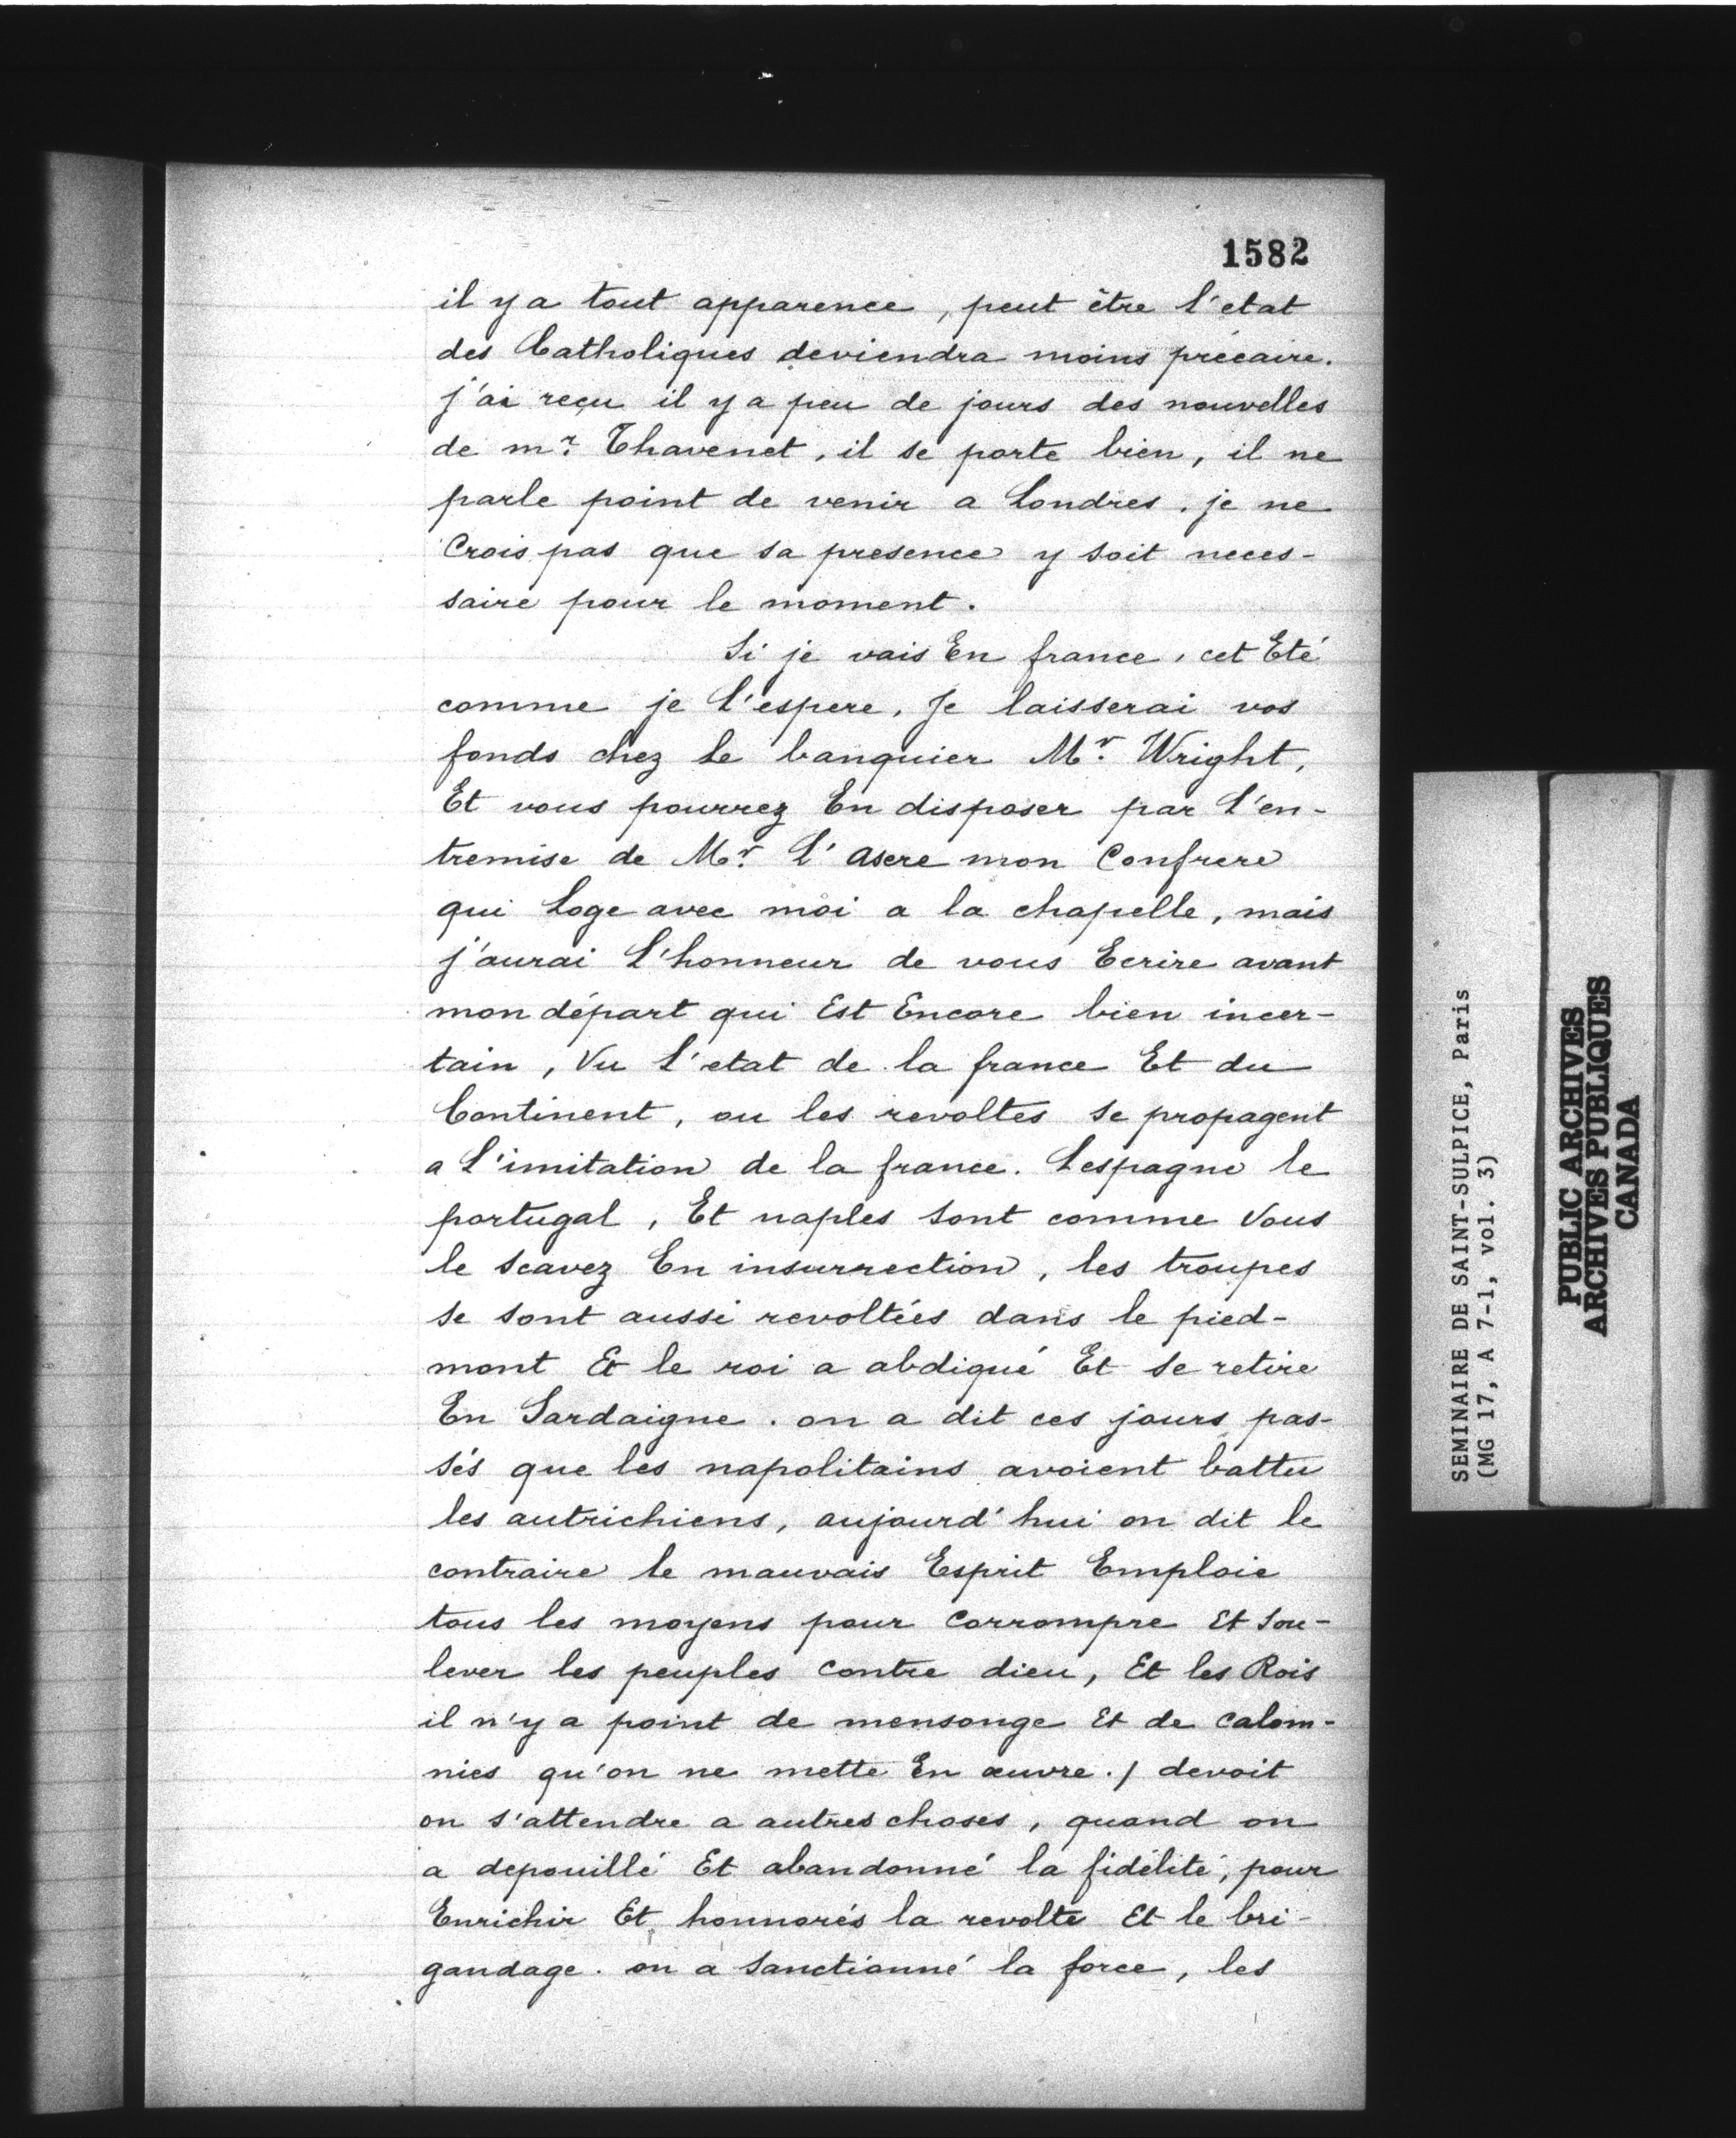 1582
il y a tout apparence, peut être l'etat
des Catholiques deviendra moins précaire.
j'ai reçu il y a peu de jours des nouvelles
de mr. Thavenet, il se porte bien, il ne
parle point de venir a Londres. je ne
Crois pas que sa presence y soit neces-
saire pour le moment.
Si je vais En france, cet Eté
comme je l'espere, Je laisserai vos
fonds chez le banquier Mr. Wright,
Et vous pourrez En disposer par l'en-
tremise de Mr. l'asere mon Confrere
qui loge avec moi a la chapelle, mais
j'aurai l'honneur de vous Ecrire avant
mon départ qui Est Encore bien incer-
tain, Vu l'etat de la france Et du
Continent, ou les revoltes se propagent
a l'imitation de la france. Lespagne le
portugal, Et naples sont comme Vous
le scavez En insurrection, les troupes
se sont aussi revoltées dans le pied-
mont Et le roi a abdiqué Et se retire
En Sardaigne. on a dit ces jours pas-
sés que les napolitains avoient battu
les autrichiens, aujourd'hui on dit le
contraire le mauvais Esprit Emploie
tous les moyens pour Corrompre Et Sou-
lever les peuples Contre dieu, Et les Rois
il n'y a point de mensonge Et de Calom-
nies qu'on ne mette En œuvre./ devoit
on s'attendre a autres choses, quand on
a depouillé Et abandonné la fidélité, pour
Enrichir Et honnorés la revolte Et le bri-
gandage. on a Sanctionné la force, les
SEMINAIRE DE SAINT-SULPICE, Paris
(MG 17, A 7-1, vol. 3)
PUBLIC ARCHIVES
ARCHIVES PUBLIQUES
CANADA